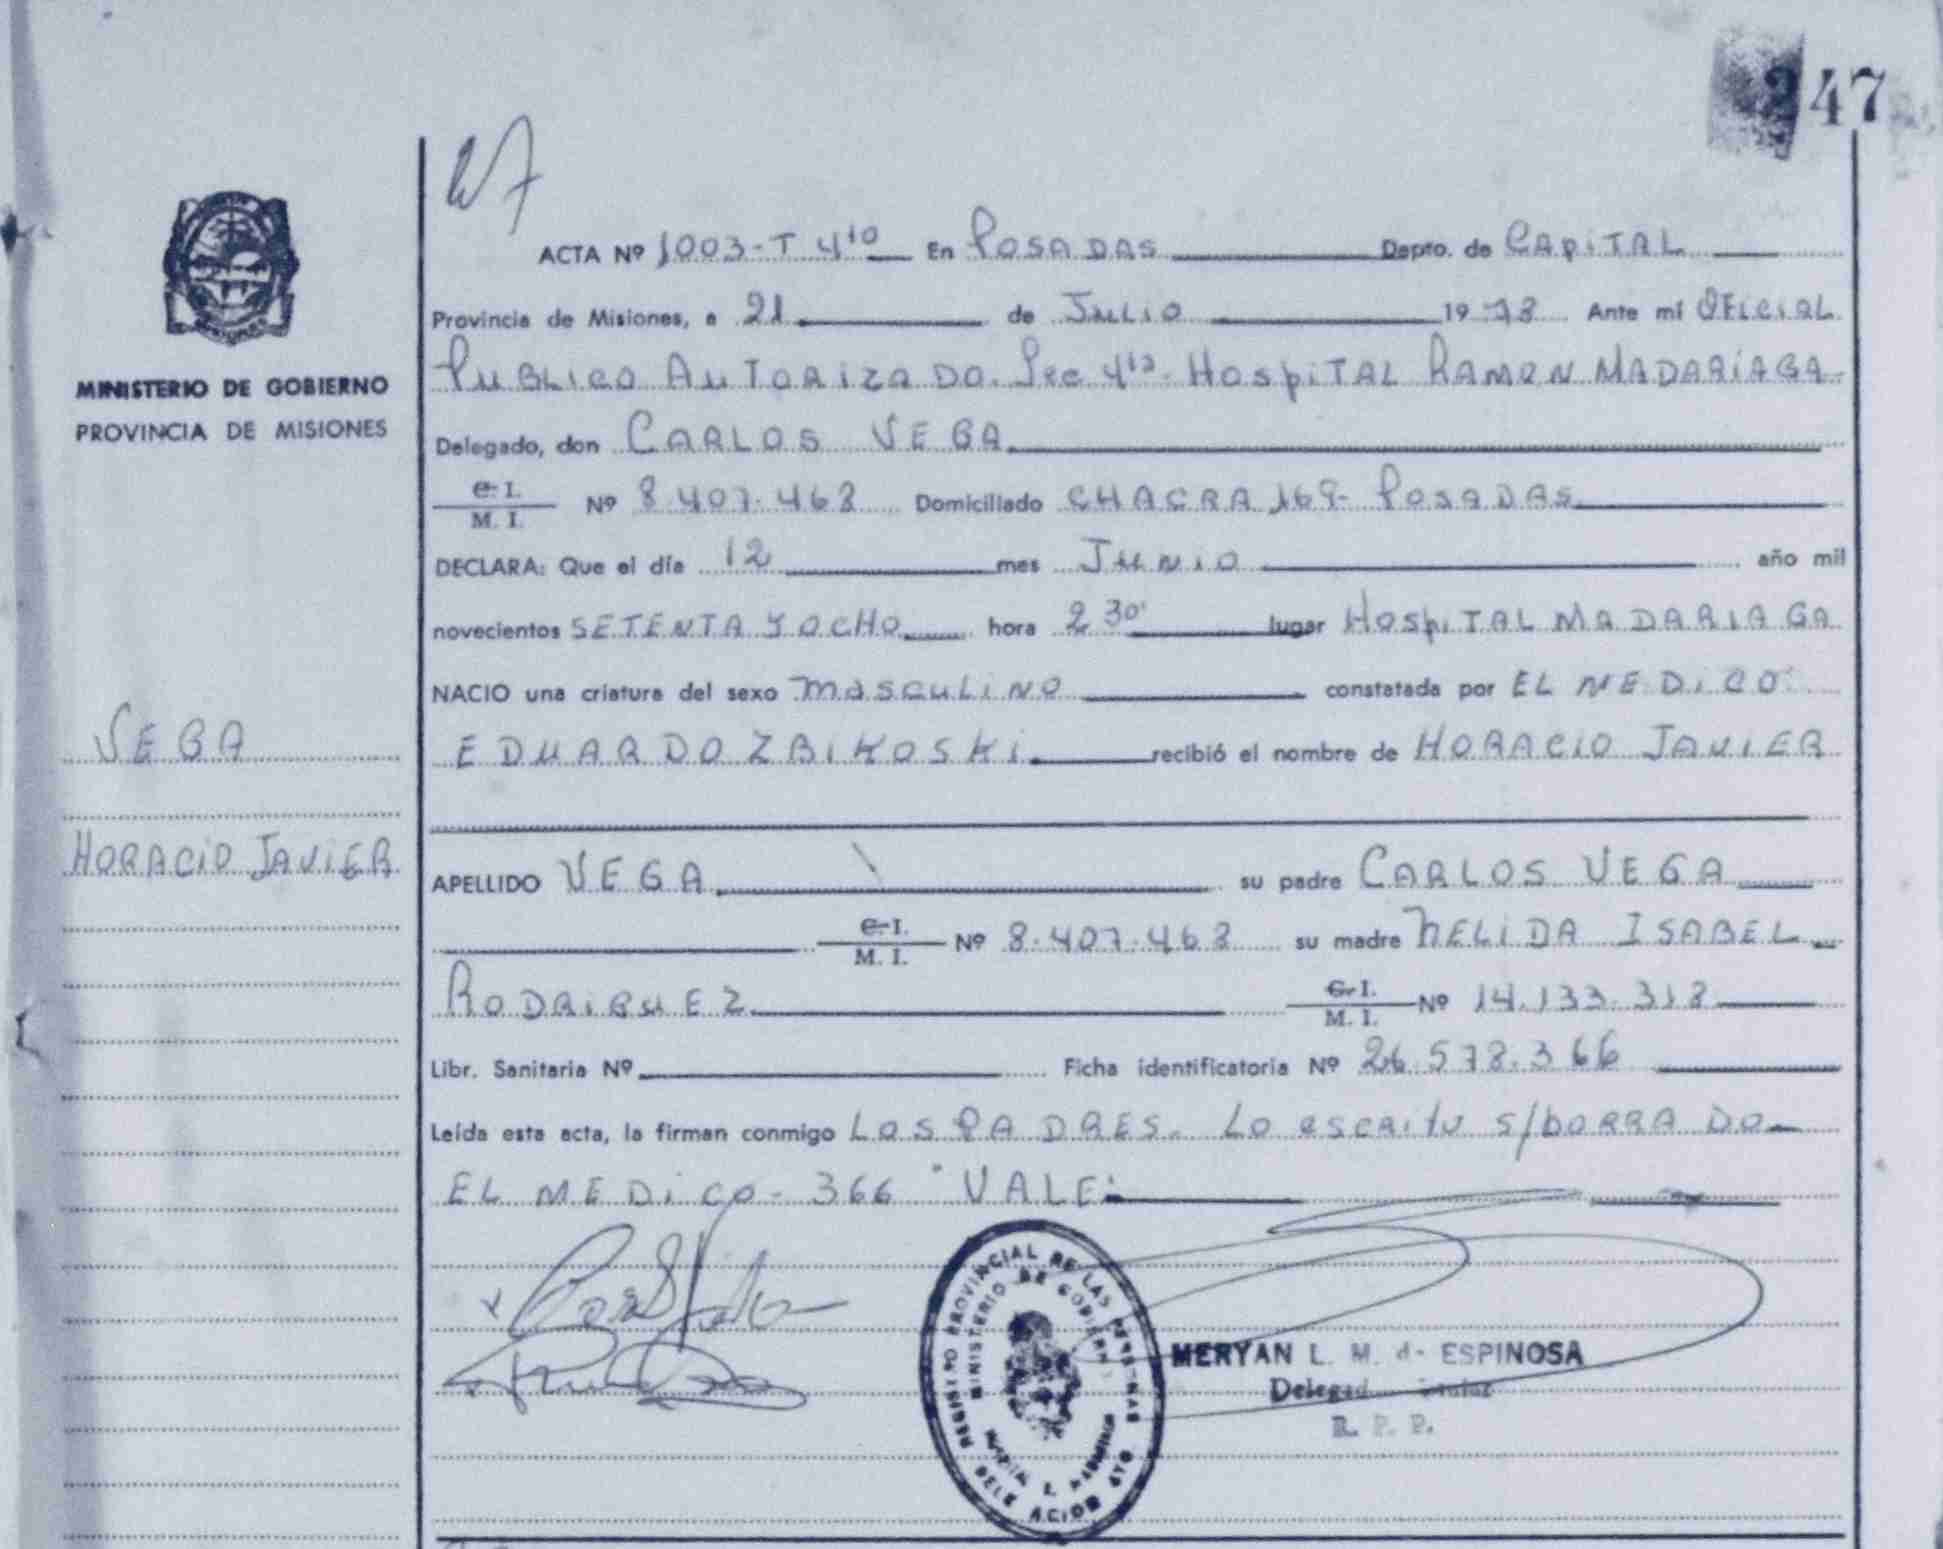 247
ACTA Nº 1003-T 4to En POSADAS Depto. de CAPITAL
Provincia de Misiones, a 21 de JULIO 1978 Ante mí OFICIAL
MINISTERIO DE GOBIERNO
PROVINCIA DE MISIONES
PUBLICO AUTORIZADO. Sec 4ta. HOSPITAL RAMON MADARIAGA
Delegado, don CARLOS VEGA
C. I. / M. I. Nº 8.407.468 Domiciliado CHACRA 169- POSADAS
DECLARA: Que el día 12 mes JUNIO año mil
novecientos SETENTA Y OCHO hora 2 30' lugar HOSPITAL MADARIAGA
NACIO una criatura del sexo MASCULINO constatada por EL MEDICO
EDUARDO ZBIKOSKI recibió el nombre de HORACIO JAVIER
VEGA
HORACIO JAVIER
APELLIDO VEGA su padre CARLOS VEGA
C. I. / M. I. Nº 8.407.468 su madre NELIDA ISABEL
RODRIGUEZ C. I. / M. I. Nº 14.133.318
Libr. Sanitaria Nº Ficha identificatoria Nº 26.578.366
Leída esta acta, la firman conmigo LOS PADRES. Lo escrito s/BORRADO
EL MEDICO - 366 "VALE:
REGISTRO PROVINCIAL DE LAS PERSONAS
MINISTERIO DE GOBIERNO
MERYAN L. M. de ESPINOSA
R. P. P.